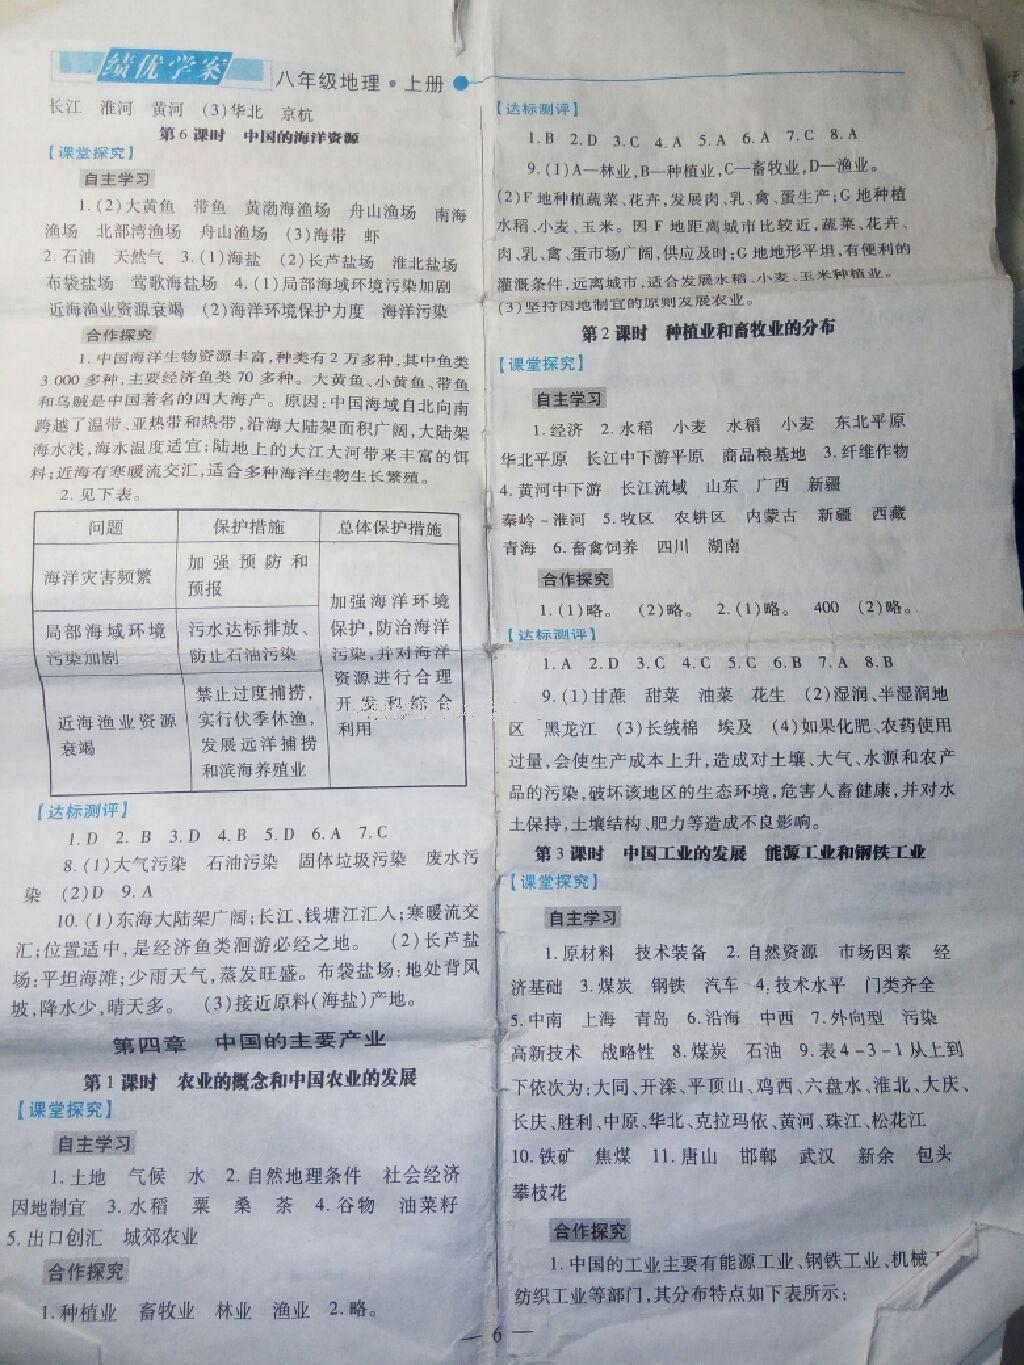 绩优学案 八年级地理·上册
长江 淮河 黄河 (3)华北 京杭
第6课时 中国的海洋资源
【课堂探究】
自主学习
1.(2)大黄鱼 带鱼 黄渤海渔场 舟山渔场 南海
渔场 北部湾渔场 舟山渔场 (3)海带 虾
2.石油 天然气 3.(1)海盐 (2)长芦盐场 淮北盐场
布袋盐场 莺歌海盐场 4.(1)局部海域环境污染加剧
近海渔业资源衰竭 (2)海洋环境保护力度 海洋污染
合作探究
1.中国海洋生物资源丰富,种类有2万多种,其中鱼类
3 000多种,主要经济鱼类70多种。大黄鱼、小黄鱼、带鱼
和乌贼是中国著名的四大海产。原因:中国海域自北向南
跨越了温带、亚热带和热带,沿海大陆架面积广阔,大陆架
海水浅,海水温度适宜;陆地上的大江大河带来丰富的饵
料;近海有寒暖流交汇,适合多种海洋生物生长繁殖。
2.见下表。
问题 保护措施 总体保护措施
海洋灾害频繁 加强预防和
预报
局部海域环境 污水达标排放、
污染加剧 防止石油污染
近海渔业资源
衰竭
禁止过度捕捞,
实行伏季休渔,
发展远洋捕捞
和滨海养殖业
加强海洋环境
保护,防治海洋
污染,并对海洋
资源进行合理
开发和综合
利用
【达标测评】
1.D 2.B 3.D 4.B 5.D 6.A 7.C
8.(1)大气污染 石油污染 固体垃圾污染 废水污
染 (2)D 9.A
10.(1)东海大陆架广阔;长江、钱塘江汇人;寒暖流交
汇;位置适中,是经济鱼类洄游必经之地。 (2)长芦盐
场:平坦海滩;少雨天气,蒸发旺盛。布袋盐场:地处背风
坡,降水少,晴天多。 (3)接近原料(海盐)产地。
第四章 中国的主要产业
第1课时 农业的概念和中国农业的发展
【课堂探究】
自主学习
1.土地 气候 水 2.自然地理条件 社会经济
因地制宜 3.水稻 粟 桑 茶 4.谷物 油菜籽
5.出口创汇 城郊农业
合作探究
1.种植业 畜牧业 林业 渔业 2.略。
【达标测评】
1.B 2.D 3.C 4.A 5.A 6.A 7.C 8.A
9.(1)A—林业,B—种植业,C—畜牧业,D—渔业。
(2)F地种植蔬菜、花卉,发展肉、乳、禽、蛋生产;G地种植
水稻、小麦、玉米。因F地距离城市比较近,蔬菜、花卉、
肉、乳、禽、蛋市场广阔,供应及时;G地地形平坦,有便利的
灌溉条件,远离城市,适合发展水稻、小麦、玉米种植业。
(3)坚持因地制宜的原则发展农业。
第2课时 种植业和畜牧业的分布
【课堂探究】
自主学习
1.经济 2.水稻 小麦 水稻 小麦 东北平原
华北平原 长江中下游平原 商品粮基地 3.纤维作物
4.黄河中下游 长江流域 山东 广西 新疆
秦岭-淮河 5.牧区 农耕区 内蒙古 新疆 西藏
青海 6.畜禽饲养 四川 湖南
合作探究
1.(1)略。 (2)略。 2.(1)略。 400 (2)略。
【达标测评】
1.A 2.D 3.C 4.C 5.C 6.B 7.A 8.B
9.(1)甘蔗 甜菜 油菜 花生 (2)湿润、半湿润地
区 黑龙江 (3)长绒棉 埃及 (4)如果化肥、农药使用
过量,会使生产成本上升,造成对土壤、大气、水源和农产
品的污染,破坏该地区的生态环境,危害人畜健康,并对水
土保持,土壤结构、肥力等造成不良影响。
第3课时 中国工业的发展 能源工业和钢铁工业
【课堂探究】
自主学习
1.原材料 技术装备 2.自然资源 市场因素 经
济基础 3.煤炭 钢铁 汽车 4.技术水平 门类齐全
5.中南 上海 青岛 6.沿海 中西 7.外向型 污染
高新技术 战略性 8.煤炭 石油 9.表4-3-1从上到
下依次为:大同、开滦、平顶山、鸡西、六盘水、淮北、大庆、
长庆、胜利、中原、华北、克拉玛依、黄河、珠江、松花江
10.铁矿 焦煤 11.唐山 邯郸 武汉 新余 包头
攀枝花
合作探究
1.中国的工业主要有能源工业、钢铁工业、机械
纺织工业等部门,其分布特点如下表所示:
— 6 —